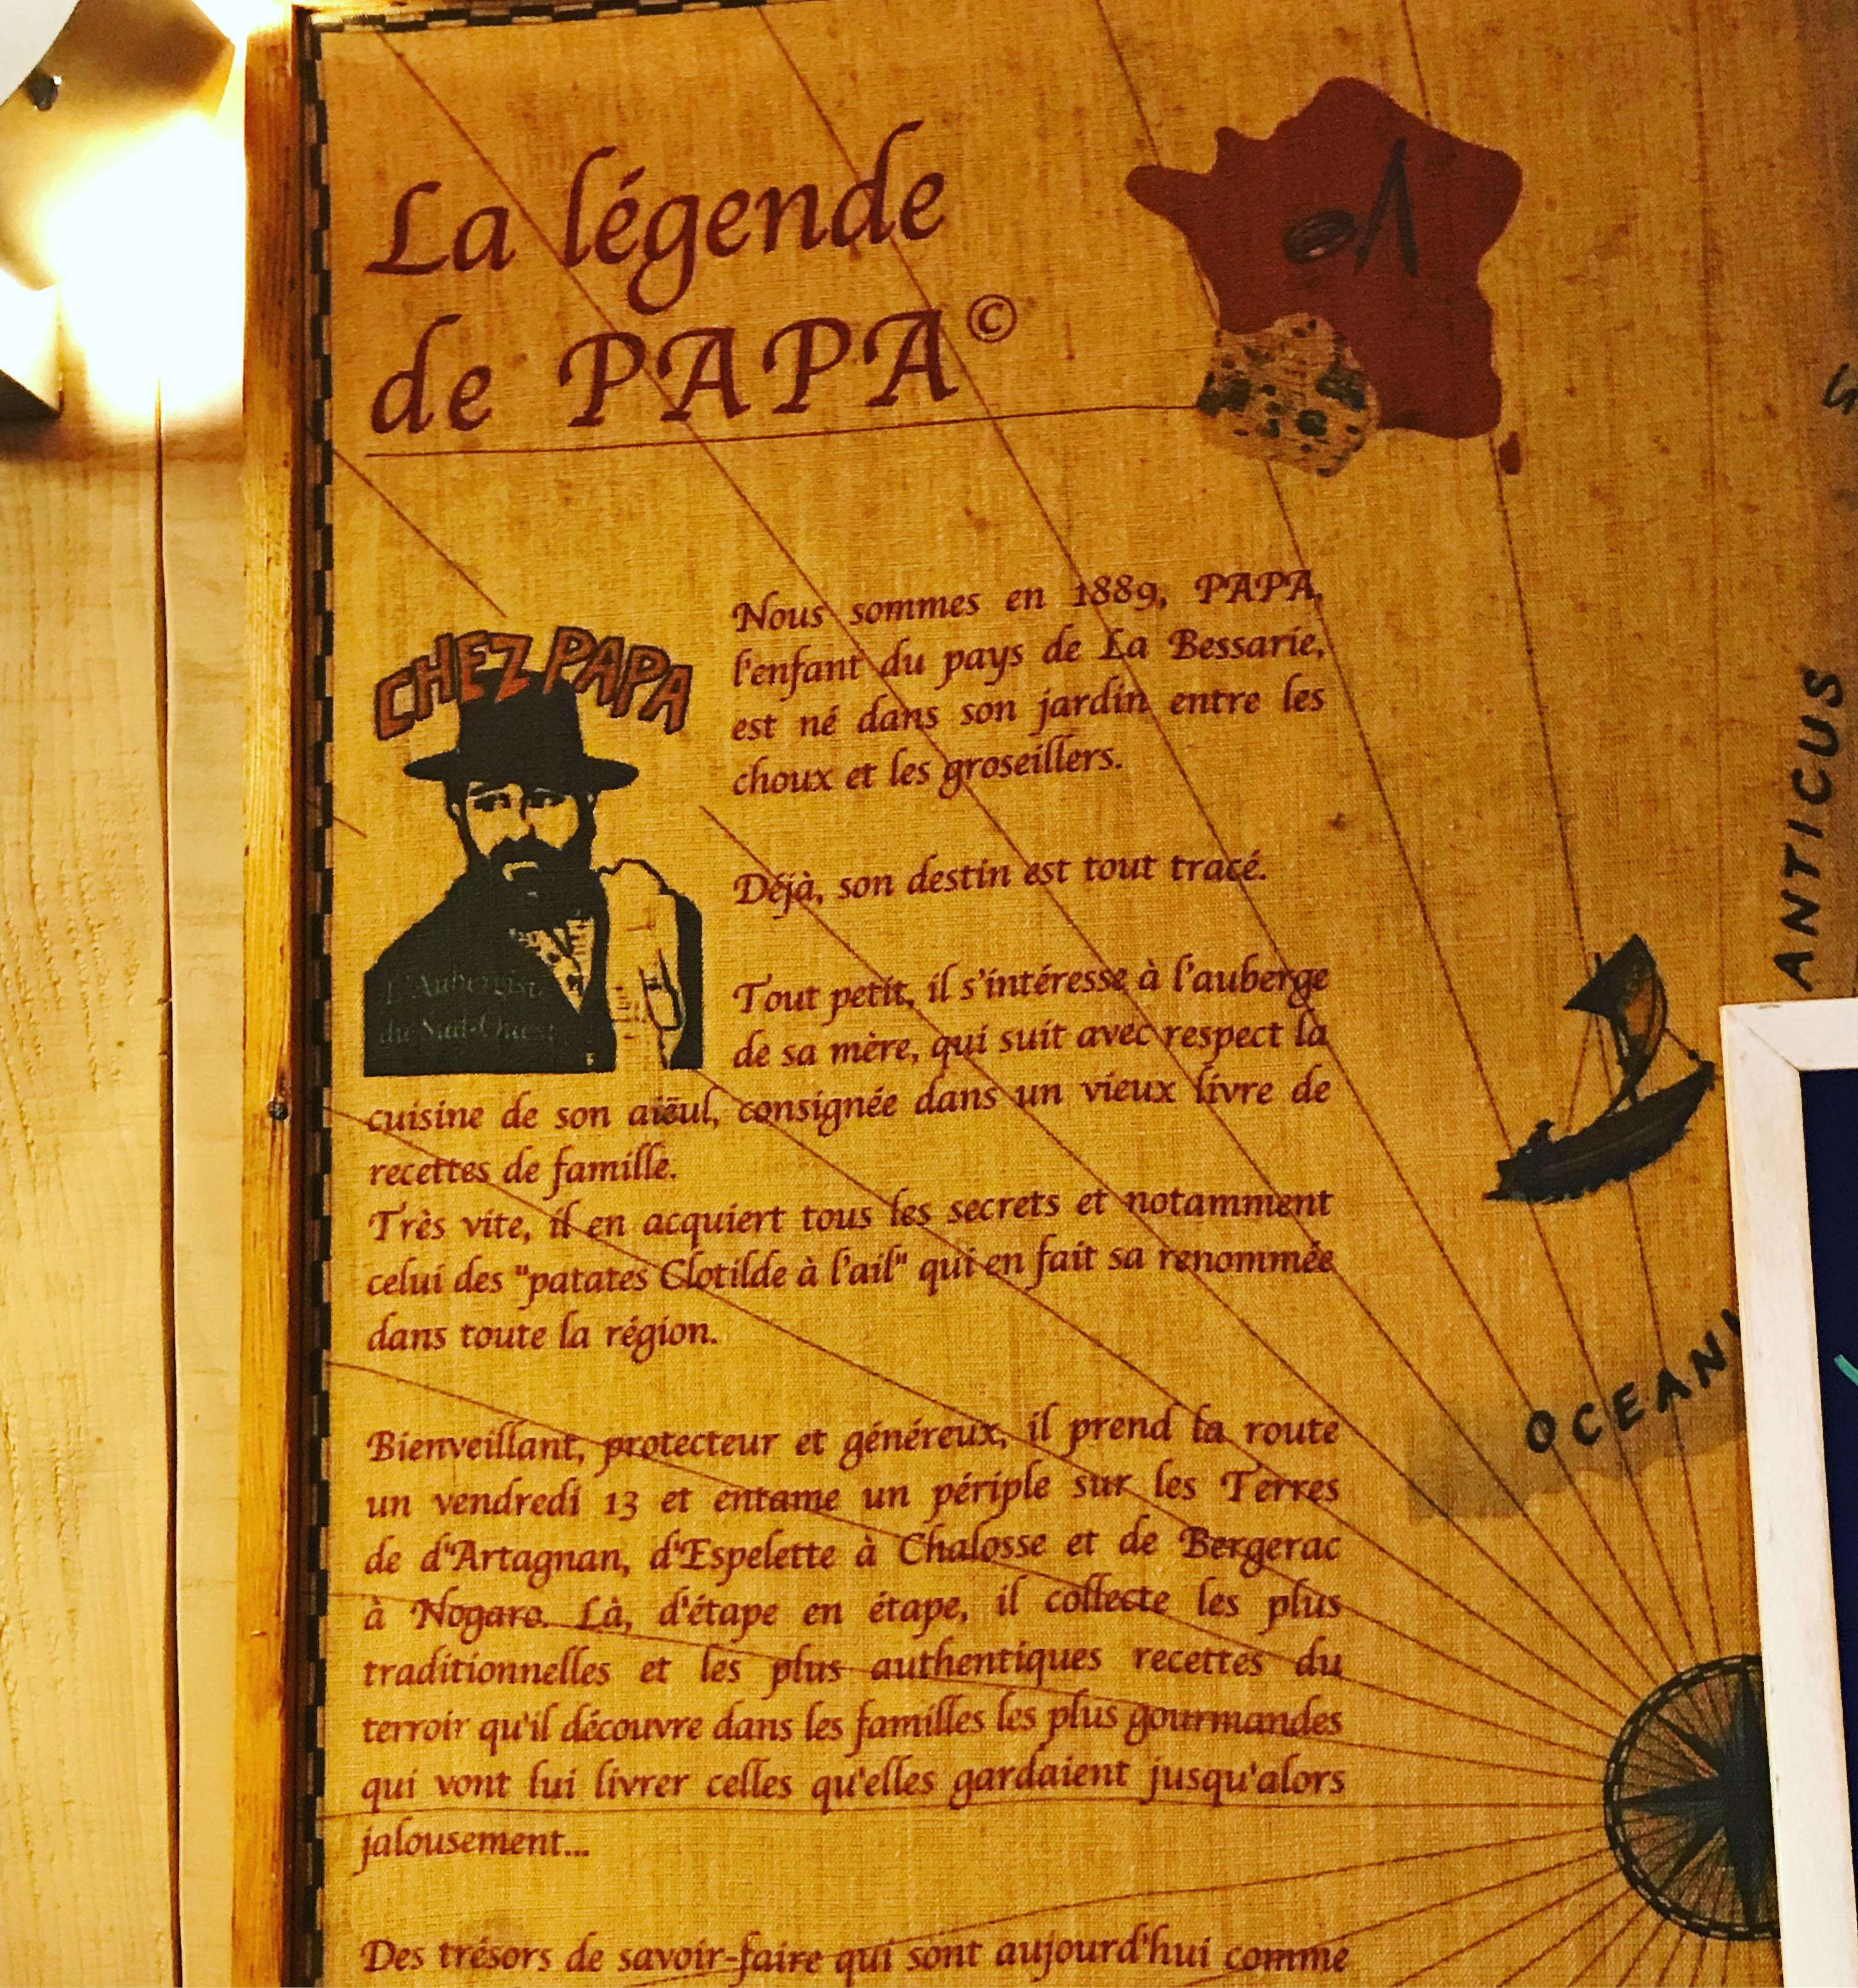 La légende
de PAPA©
CHEZ PAPA
L'Aubergiste
du Sud-Ouest
Nous sommes en 1889, PAPA,
l'enfant du pays de La Bessarie,
est né dans son jardin entre les
choux et les groseillers.
Déjà, son destin est tout tracé.
Tout petit, il s'intéresse à l'auberge
de sa mère, qui suit avec respect la
cuisine de son aïeul, consignée dans un vieux livre de
recettes de famille.
Très vite, il en acquiert tous les secrets et notamment
celui des "patates Clotilde à l'ail" qui en fait sa renommée
dans toute la région.
Bienveillant, protecteur et généreux, il prend la route
un vendredi 13 et entame un périple sur les Terres
de d'Artagnan, d'Espelette à Chalosse et de Bergerac
à Nogaro. Là, d'étape en étape, il collecte les plus
traditionnelles et les plus authentiques recettes du
terroir qu'il découvre dans les familles les plus gourmandes
qui vont lui livrer celles qu'elles gardaient jusqu'alors
jalousement...
Des trésors de savoir-faire qui sont aujourd'hui comme
ANTICUS
OCEAN